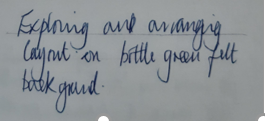 Exploring and arranging
layout on bottle green felt
background.